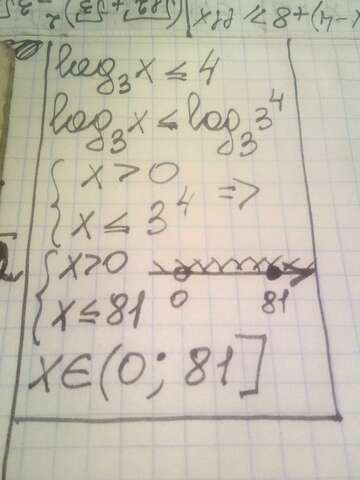 log₃x ≤ 4
log₃x ≤ log₃3⁴
{ x > 0
x ≤ 3⁴ =>
{ x>0
x ≤ 81
0 81
x∈(0; 81]